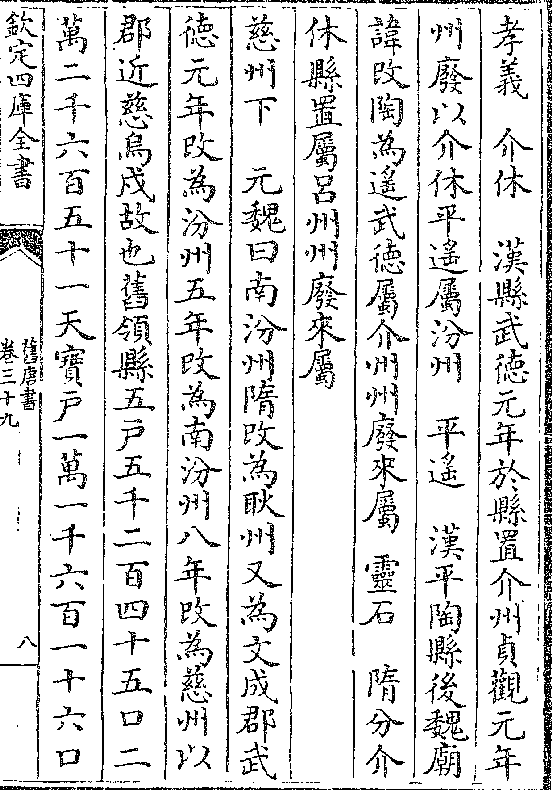 孝義　介休　漢縣武徳元年於縣置介州貞觀元年
州廢以介休平遙屬汾州　平遙　漢平陶縣後魏廟
諱改陶為遙武徳屬介州州廢來屬　靈石　隋分介
休縣置屬呂州州廢來屬
慈州下　元魏曰南汾州隋改為耿州又為文成郡武
徳元年改為汾州五年改為南汾州八年改為慈州以
郡近慈烏戍故也舊領縣五户五千二百四十五口二
萬二千六百五十一天寶户一萬一千六百一十六口
欽定四庫全書
舊唐書
卷三十九
八